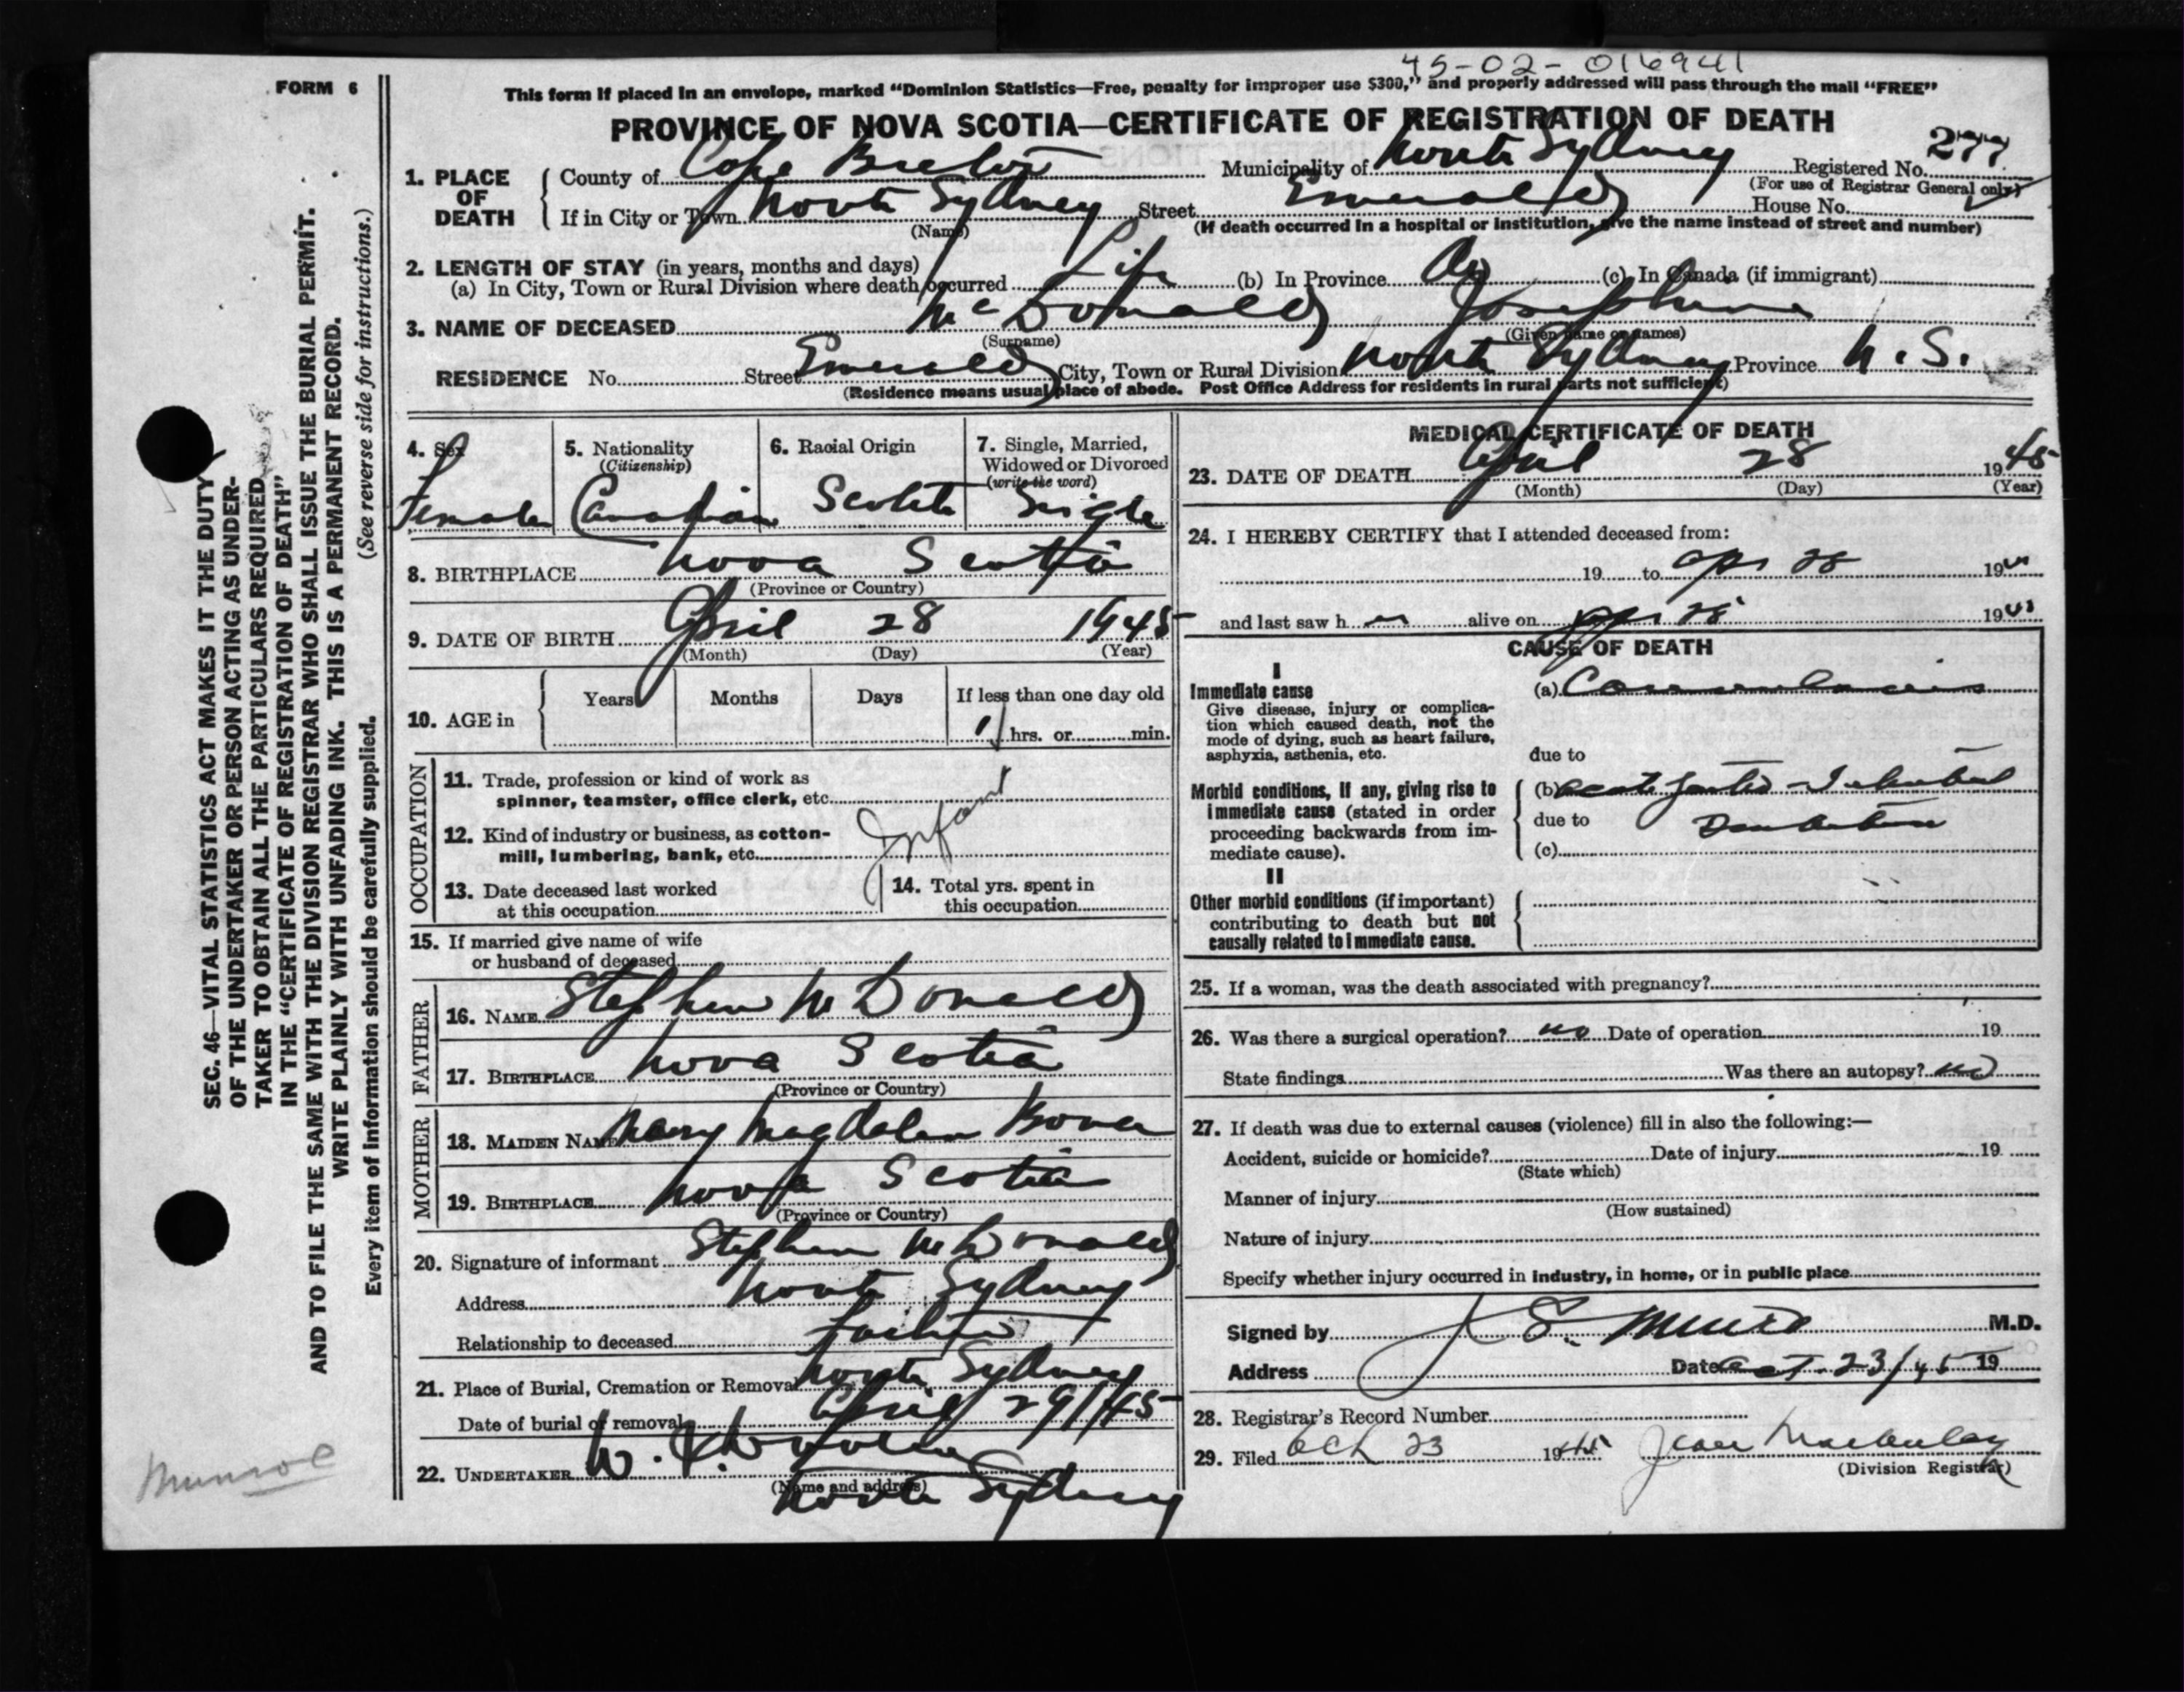 45-02-016941
FORM 6
This form if placed in an envelope, marked "Dominion Statistics—Free, penalty for improper use $300," and properly addressed will pass through the mail "FREE"
PROVINCE OF NOVA SCOTIA—CERTIFICATE OF REGISTRATION OF DEATH
277
1. PLACE OF DEATH
County of Cape Breton Municipality of North Sydney Registered No.
(For use of Registrar General only)
If in City or Town North Sydney Street Emerald House No.
(Name) (If death occurred in a hospital or institution, give the name instead of street and number)
2. LENGTH OF STAY (in years, months and days)
(a) In City, Town or Rural Division where death occurred Life (b) In Province (c) In Canada (if immigrant)
3. NAME OF DECEASED McDonald Josephine
(Surname) (Given name or names)
RESIDENCE No. Street Emerald City, Town or Rural Division North Sydney Province N.S.
(Residence means usual place of abode. Post Office Address for residents in rural parts not sufficient)
4. Sex
Female
5. Nationality
(Citizenship)
Canadian
6. Racial Origin
Scotch
7. Single, Married,
Widowed or Divorced
(write the word)
Single
8. BIRTHPLACE Nova Scotia
(Province or Country)
9. DATE OF BIRTH April 28 1945
(Month) (Day) (Year)
10. AGE in
Years Months Days If less than one day old
1 hrs. or min.
OCCUPATION
11. Trade, profession or kind of work as
spinner, teamster, office clerk, etc.
Infant
12. Kind of industry or business, as cotton-
mill, lumbering, bank, etc.
13. Date deceased last worked
at this occupation
14. Total yrs. spent in
this occupation
15. If married give name of wife
or husband of deceased
FATHER
16. NAME Stephen McDonald
17. BIRTHPLACE Nova Scotia
(Province or Country)
MOTHER
18. MAIDEN NAME Mary Magdalen
19. BIRTHPLACE Nova Scotia
(Province or Country)
20. Signature of informant Stephen McDonald
Address North Sydney
Relationship to deceased Father
21. Place of Burial, Cremation or Removal North Sydney
Date of burial or removal April 29/45
22. UNDERTAKER W.
(Name and address)
North Sydney
MEDICAL CERTIFICATE OF DEATH
23. DATE OF DEATH April 28 1945
(Month) (Day) (Year)
24. I HEREBY CERTIFY that I attended deceased from:
19 to Apr 28 1945
and last saw h er alive on Apr 28 1945
CAUSE OF DEATH
I
Immediate cause
Give disease, injury or complica-
tion which caused death, not the
mode of dying, such as heart failure,
asphyxia, asthenia, etc.
(a)
due to
Morbid conditions, if any, giving rise to
immediate cause (stated in order
proceeding backwards from im-
mediate cause).
(b) acute
due to
(c)
II
Other morbid conditions (if important)
contributing to death but not
causally related to immediate cause.
25. If a woman, was the death associated with pregnancy?
26. Was there a surgical operation? no Date of operation 19
State findings Was there an autopsy? no
27. If death was due to external causes (violence) fill in also the following:—
Accident, suicide or homicide? Date of injury 19
(State which)
Manner of injury
(How sustained)
Nature of injury
Specify whether injury occurred in industry, in home, or in public place
Signed by S. Munro M.D.
Address Date Oct. 23/45 19
28. Registrar's Record Number
29. Filed Oct 23 1945 Jean
(Division Registrar)
SEC. 46—VITAL STATISTICS ACT MAKES IT THE DUTY
OF THE UNDERTAKER OR PERSON ACTING AS UNDER-
TAKER TO OBTAIN ALL THE PARTICULARS REQUIRED
IN THE "CERTIFICATE OF REGISTRATION OF DEATH"
AND TO FILE THE SAME WITH THE DIVISION REGISTRAR WHO SHALL ISSUE THE BURIAL PERMIT.
WRITE PLAINLY WITH UNFADING INK. THIS IS A PERMANENT RECORD.
(See reverse side for instructions.)
Every item of information should be carefully supplied.
Munroe